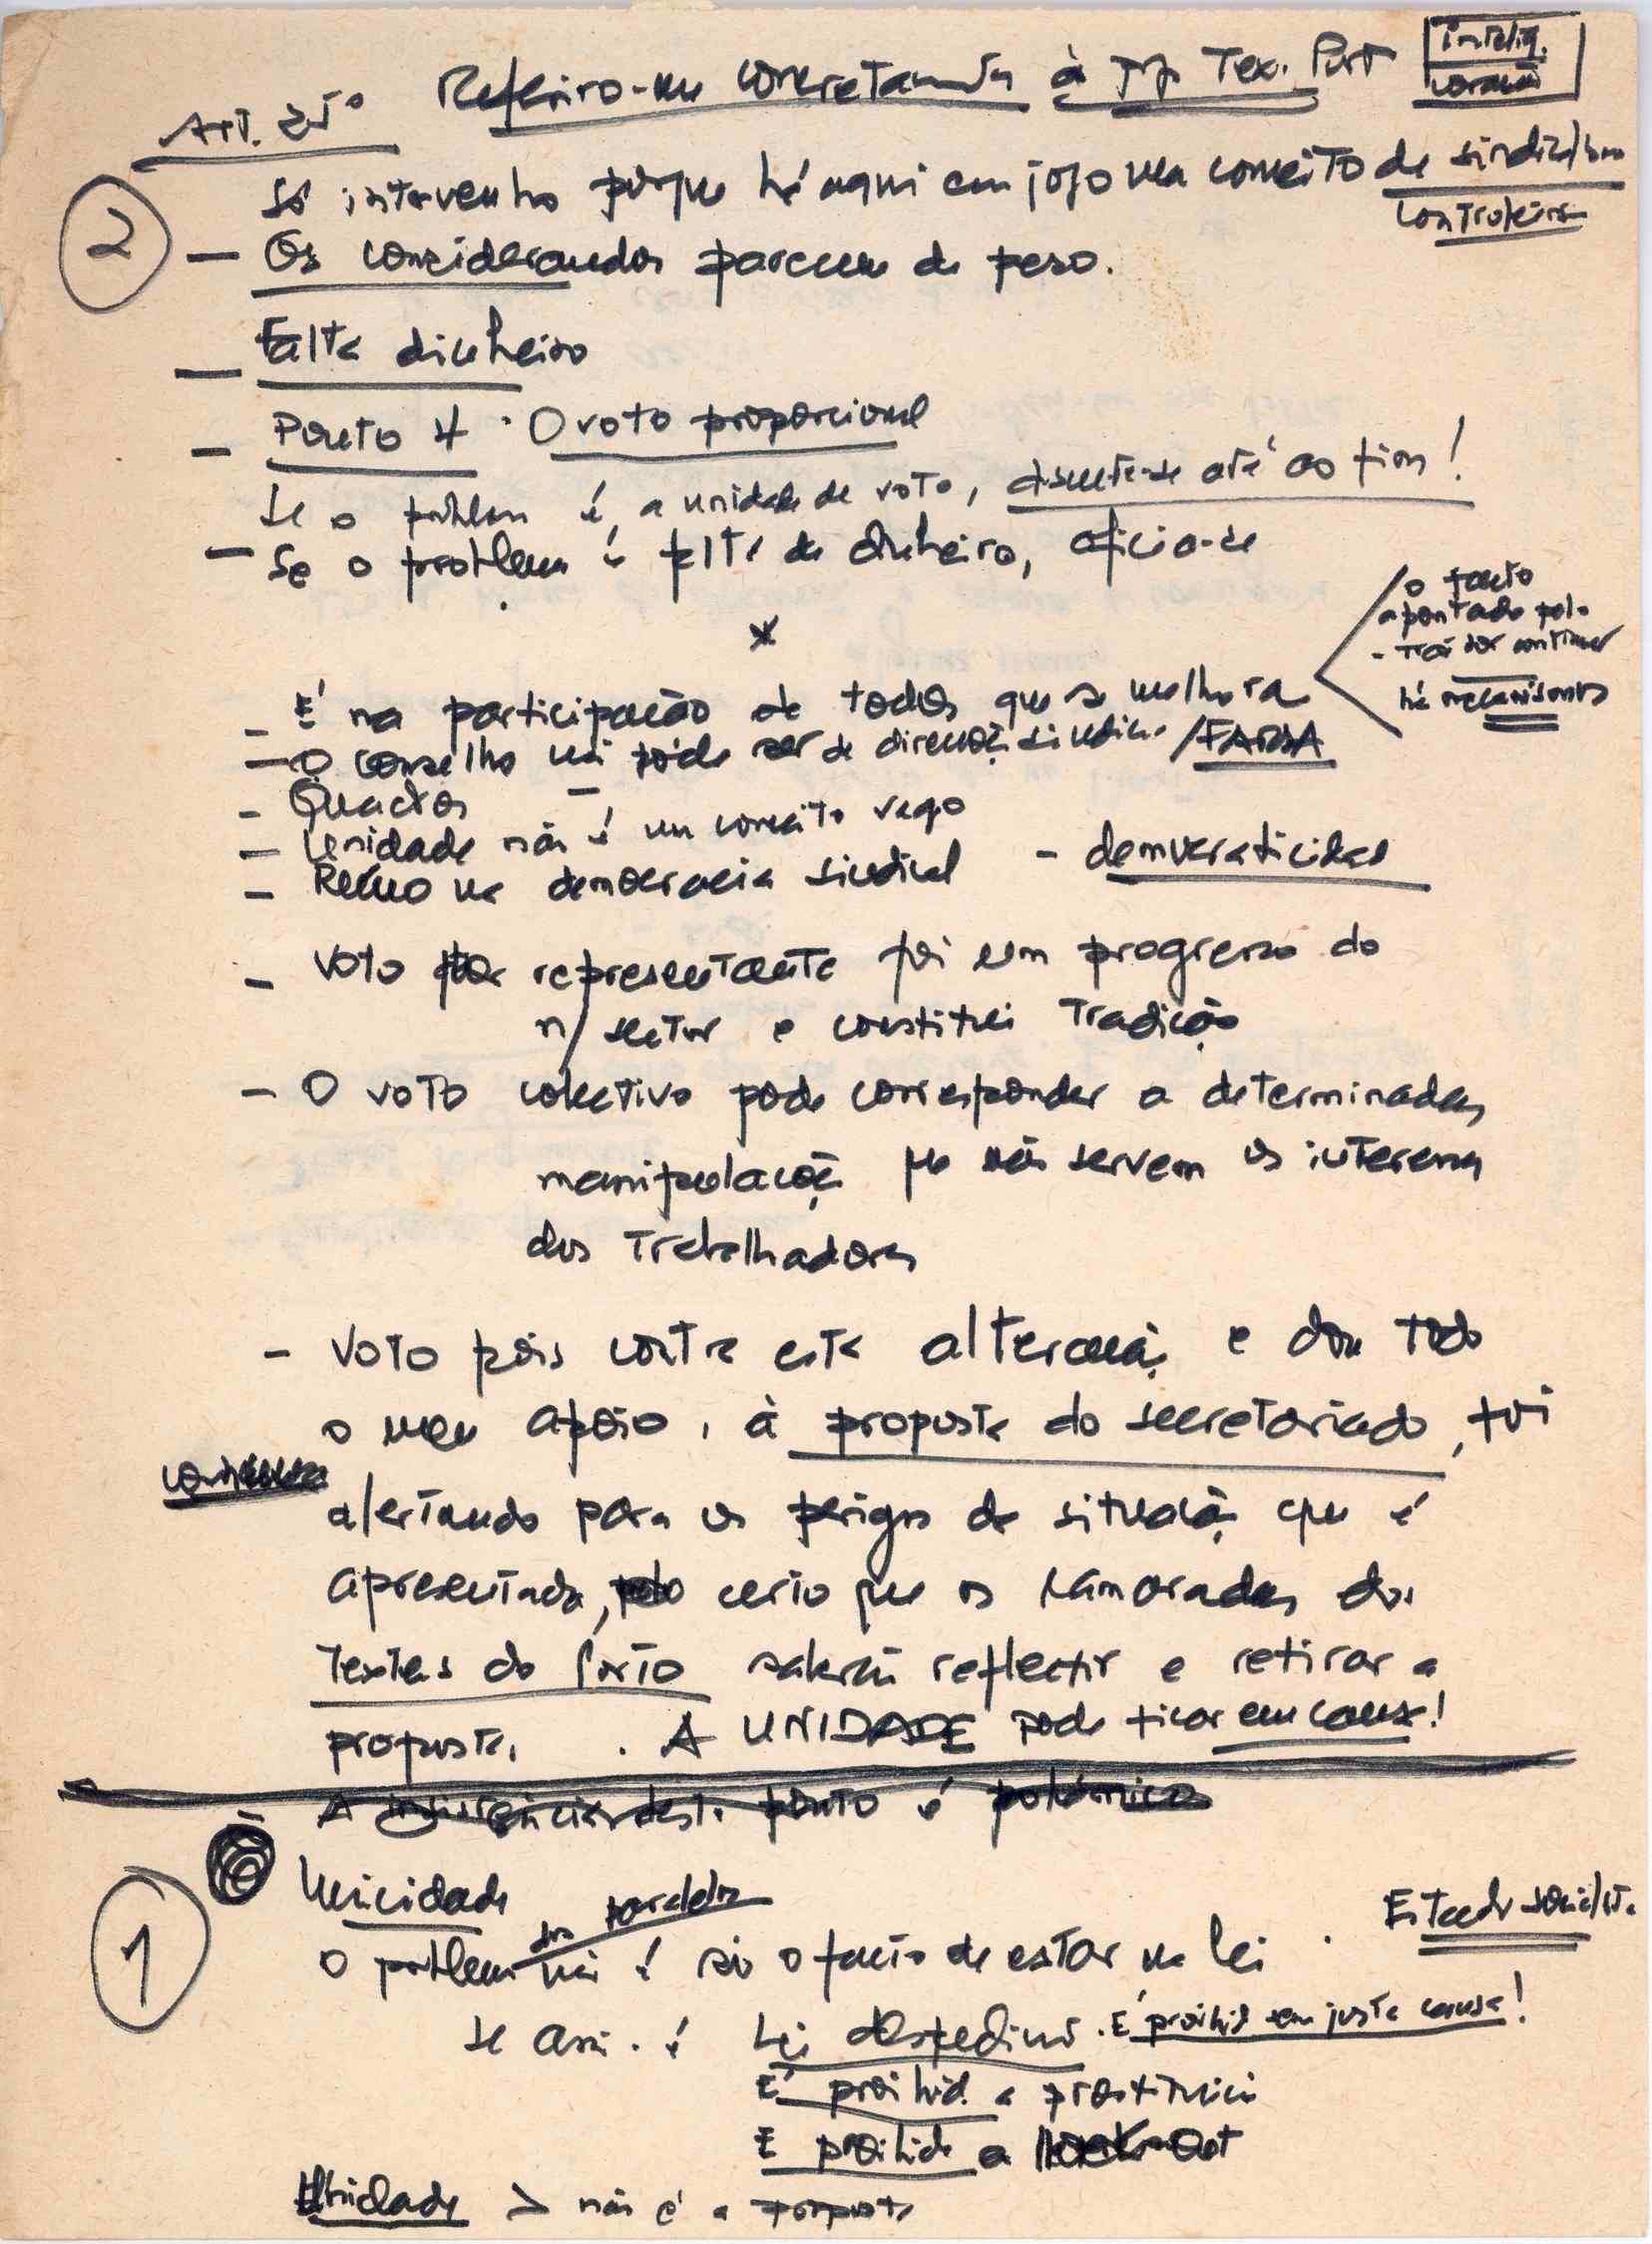 Art. 25º
Refiro-me concretamente à pp. Tex. Port
intelig.
coração
2
Só intervenho porque há aqui em jogo um conceito de
controleiro
— Os considerandos parecem de peso.
— Falta dinheiro
— Ponto 4 · O voto proporcional
Se o problem é, a unidade de voto, discute-se até ao fim!
— Se o problem é falta de dinheiro, oficia-se
x
o facto
apontado pelo
há mecanismos
- É na participação de todos que se melhora
— O conselho não pode ser de direcções sindicais /FARSA
- Quadros
— Unidade não é um conceito vago
— Recuo na democracia sindical - democraticidade
- Voto por representante foi um progresso do
n/ sector e constitui tradição
- O voto colectivo pode corresponder a determinadas
manipulações que não servem os interesses
dos Trabalhadores
- Voto pois contra esta alteração e dou todo
o meu apoio, à proposta do secretariado,
alertando para os perigos da situação que é
apresentada, certo que os camaradas dos
Texteis do Porto saberão reflectir e retirar a
proposta. . A UNIDADE pode ficar em causa!
ponto é polémica
1
Unicidade
O problema não é só o facto de estar na lei . Estado socialista
Se assi. é Lei despedim. É proibid sem justa causa!
É proibid. a prostituição
É proibido a lock-out
Unidade > não é a proposta